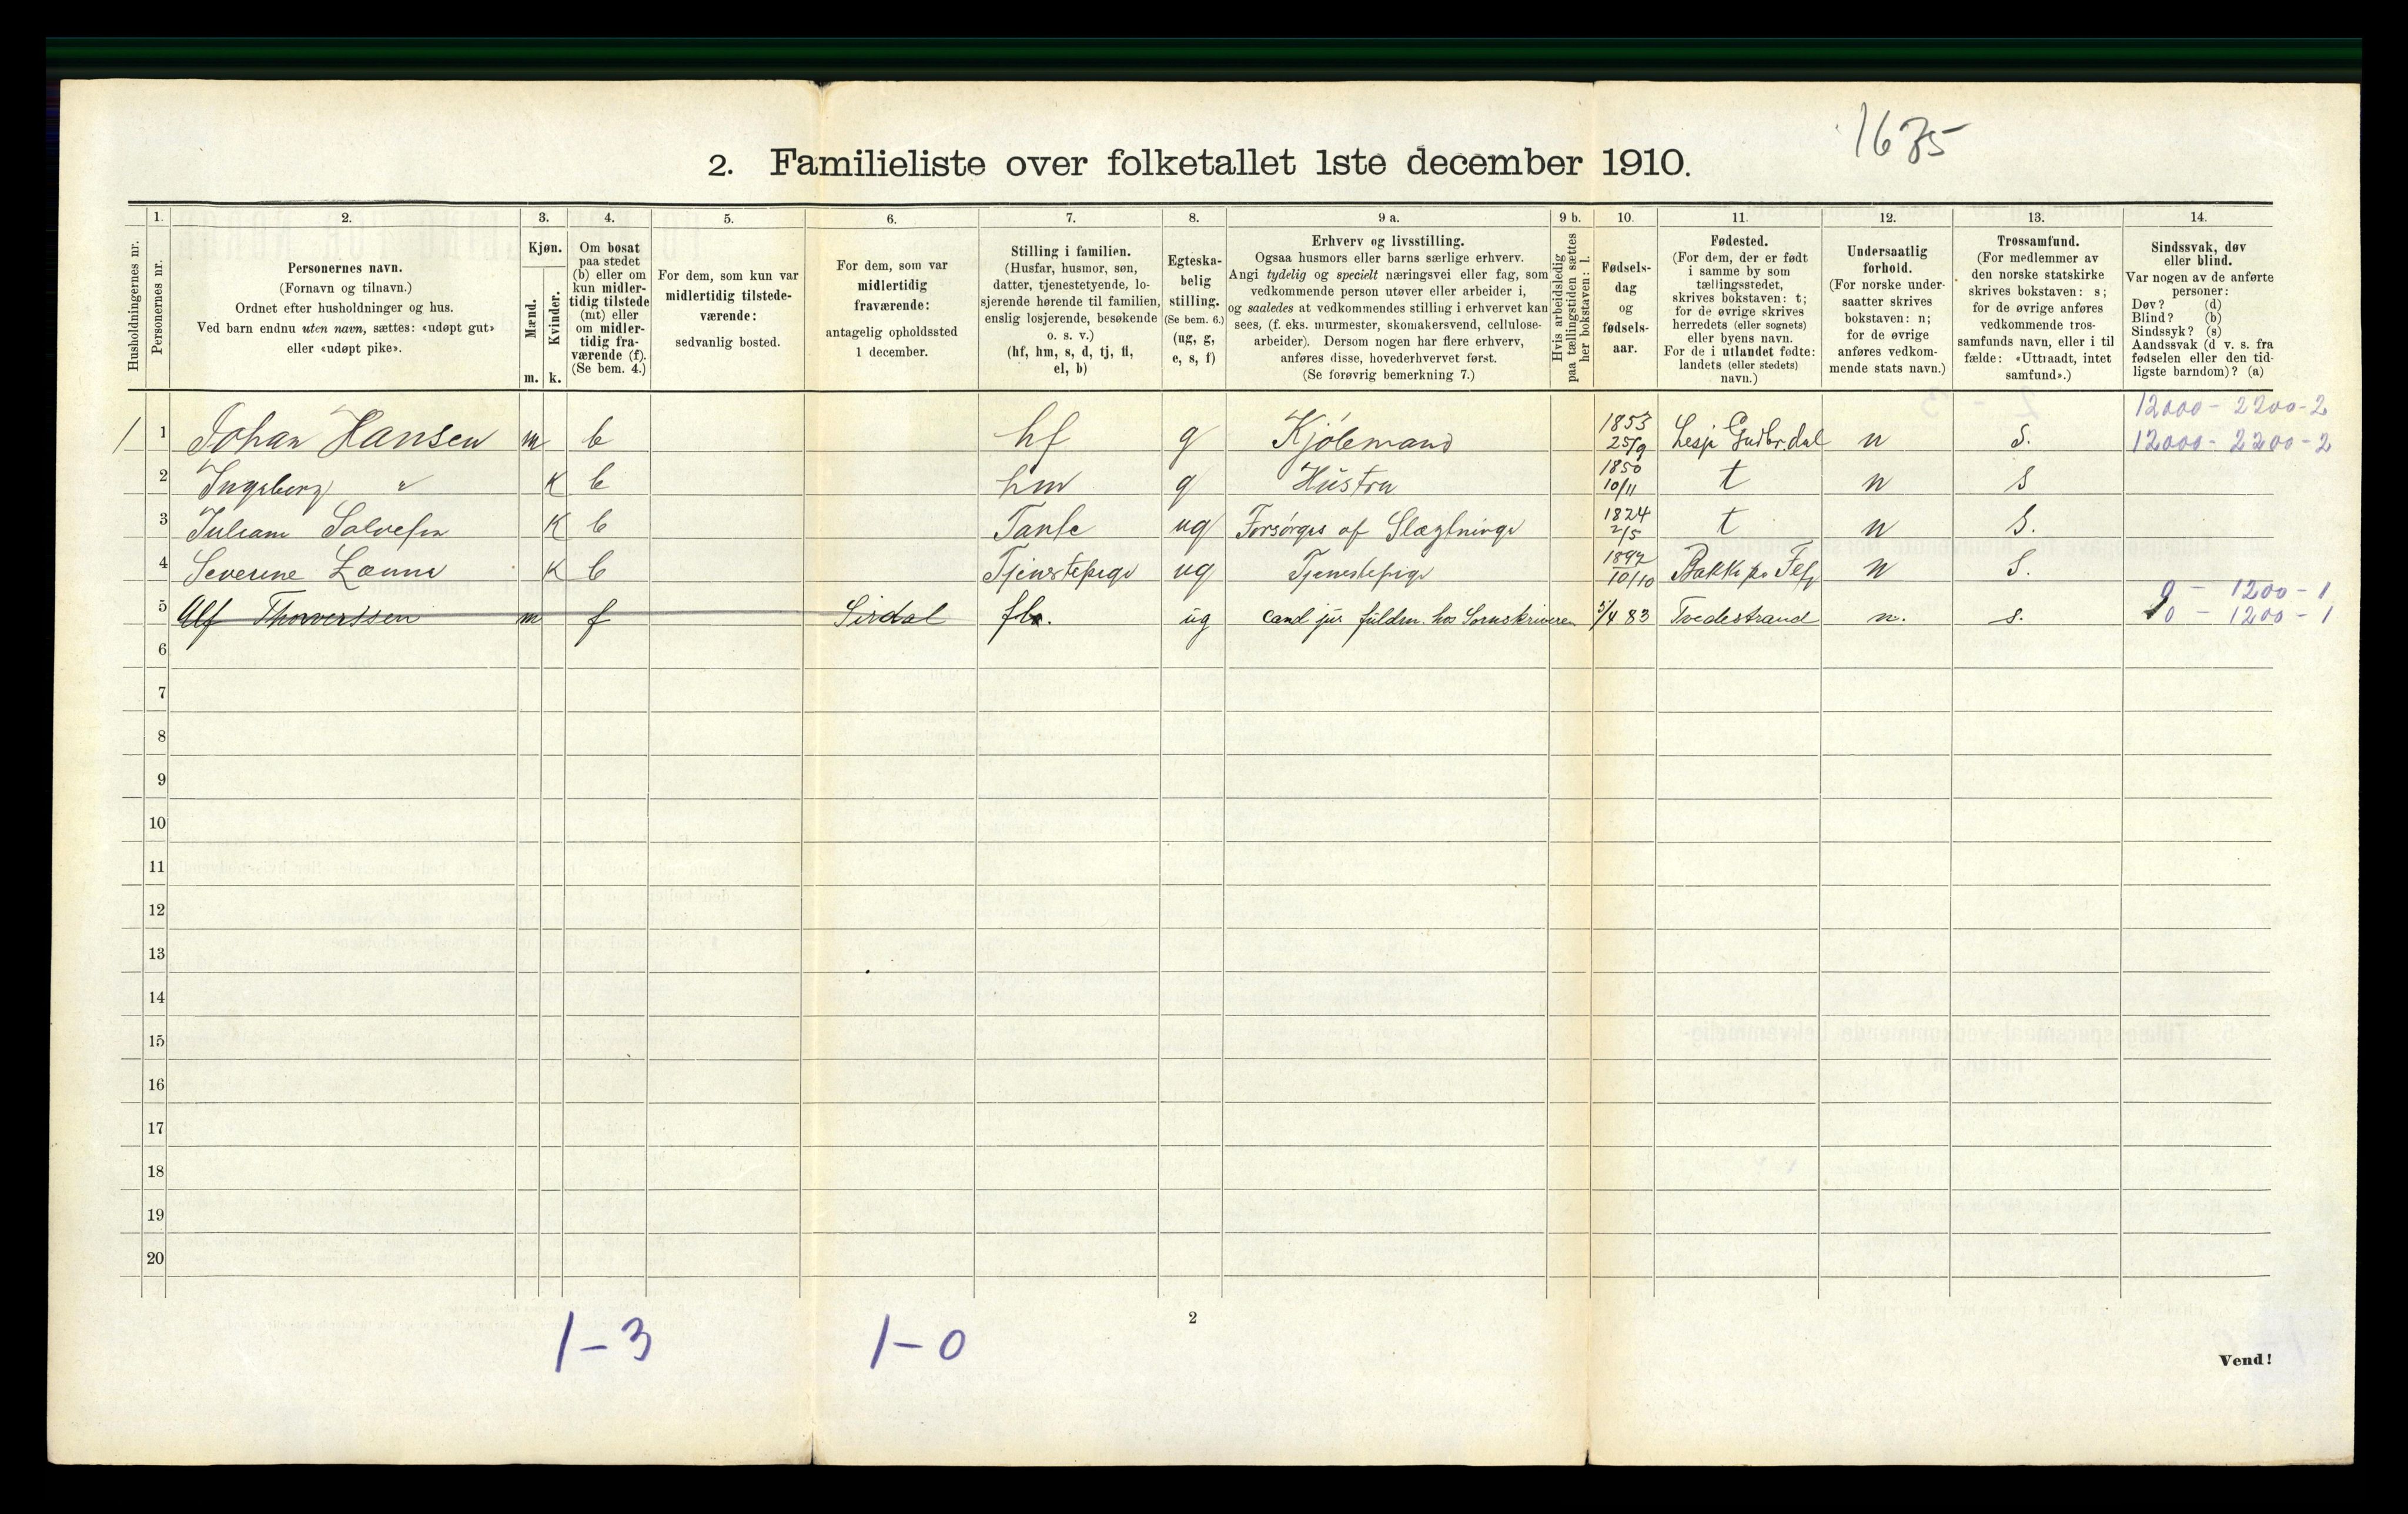 1675
2. Familieliste over folketallet 1ste december 1910.
Husholdningernes nr.
1.
Personernes nr.
2.
Personernes navn.
(Fornavn og tilnavn.)
Ordnet efter husholdninger og hus.
Ved barn endnu uten navn, sættes: «udøpt gut»
eller «udøpt pike».
3.
Kjøn.
Mænd.
Kvinder.
m. k.
4.
Om bosat
paa stedet
(b) eller om
kun midler-
tidig tilstede
(mt) eller
om midler-
tidig fra-
værende (f).
(Se bem. 4.)
5.
For dem, som kun var
midlertidig tilstede-
værende:
sedvanlig bosted.
6.
For dem, som var
midlertidig
fraværende:
antagelig opholdssted
1 december.
7.
Stilling i familien.
(Husfar, husmor, søn,
datter, tjenestetyende, lo-
sjerende hørende til familien,
enslig losjerende, besøkende
o. s. v.)
(hf, hm, s, d, tj, fl,
el, b)
8.
Egteska-
belig
stilling.
(Se bem. 6.)
(ug, g,
e, s, f)
9 a.
Erhverv og livsstilling.
Ogsaa husmors eller barns særlige erhverv.
Angi tydelig og specielt næringsvei eller fag, som
vedkommende person utøver eller arbeider i,
og saaledes at vedkommendes stilling i erhvervet kan
sees, (f. eks. murmester, skomakersvend, cellulose-
arbeider). Dersom nogen har flere erhverv,
anføres disse, hovederhvervet først.
(Se forøvrig bemerkning 7.)
9 b.
Hvis arbeidsledig
paa tællingstiden sættes
her bokstaven: l.
10.
Fødsels-
dag
og
fødsels-
aar.
11.
Fødested.
(For dem, der er født
i samme by som
tællingsstedet,
skrives bokstaven: t;
for de øvrige skrives
herredets (eller sognets)
eller byens navn.
For de i utlandet fødte:
landets (eller stedets)
navn.)
12.
Undersaatlig
forhold.
(For norske under-
saatter skrives
bokstaven: n;
for de øvrige
anføres vedkom-
mende stats navn.)
13.
Trossamfund.
(For medlemmer av
den norske statskirke
skrives bokstaven: s;
for de øvrige anføres
vedkommende tros-
samfunds navn, eller i til
fælde: «Uttraadt, intet
samfund».)
14.
Sindssvak, døv
eller blind.
Var nogen av de anførte
personer:
Døv? (d)
Blind? (b)
Sindssyk? (s)
Aandssvak (d v. s. fra
fødselen eller den tid-
ligste barndom)? (a)
12000 - 2200 - 2
1 1 Johan Hansen m b hf g Kjøbmand 1853 25/9 Lesje Gudbr.dal n S. 12000 - 2200 - 2
2 Ingeborg " K b hm g Hustru 1850 10/11 t n S
3 Juliane Salvesen K b Tante ug Forsørges af Slægtninge 1824 2/5 t n S.
4 Severine K b Tjenstepige ug Tjenestepige 1892 10/10 Bakke n S.
0 - 1200 - 1
5 Alf m f Sirdal ug cand jur fuldm. hos Sorenskriveren 5/4 83 Tvedestrand n. s. 0 - 1200 - 1
6
7
8
9
10
11
12
13
14
15
16
17
18
19
20
1 - 3 1 - 0
2
Vend!